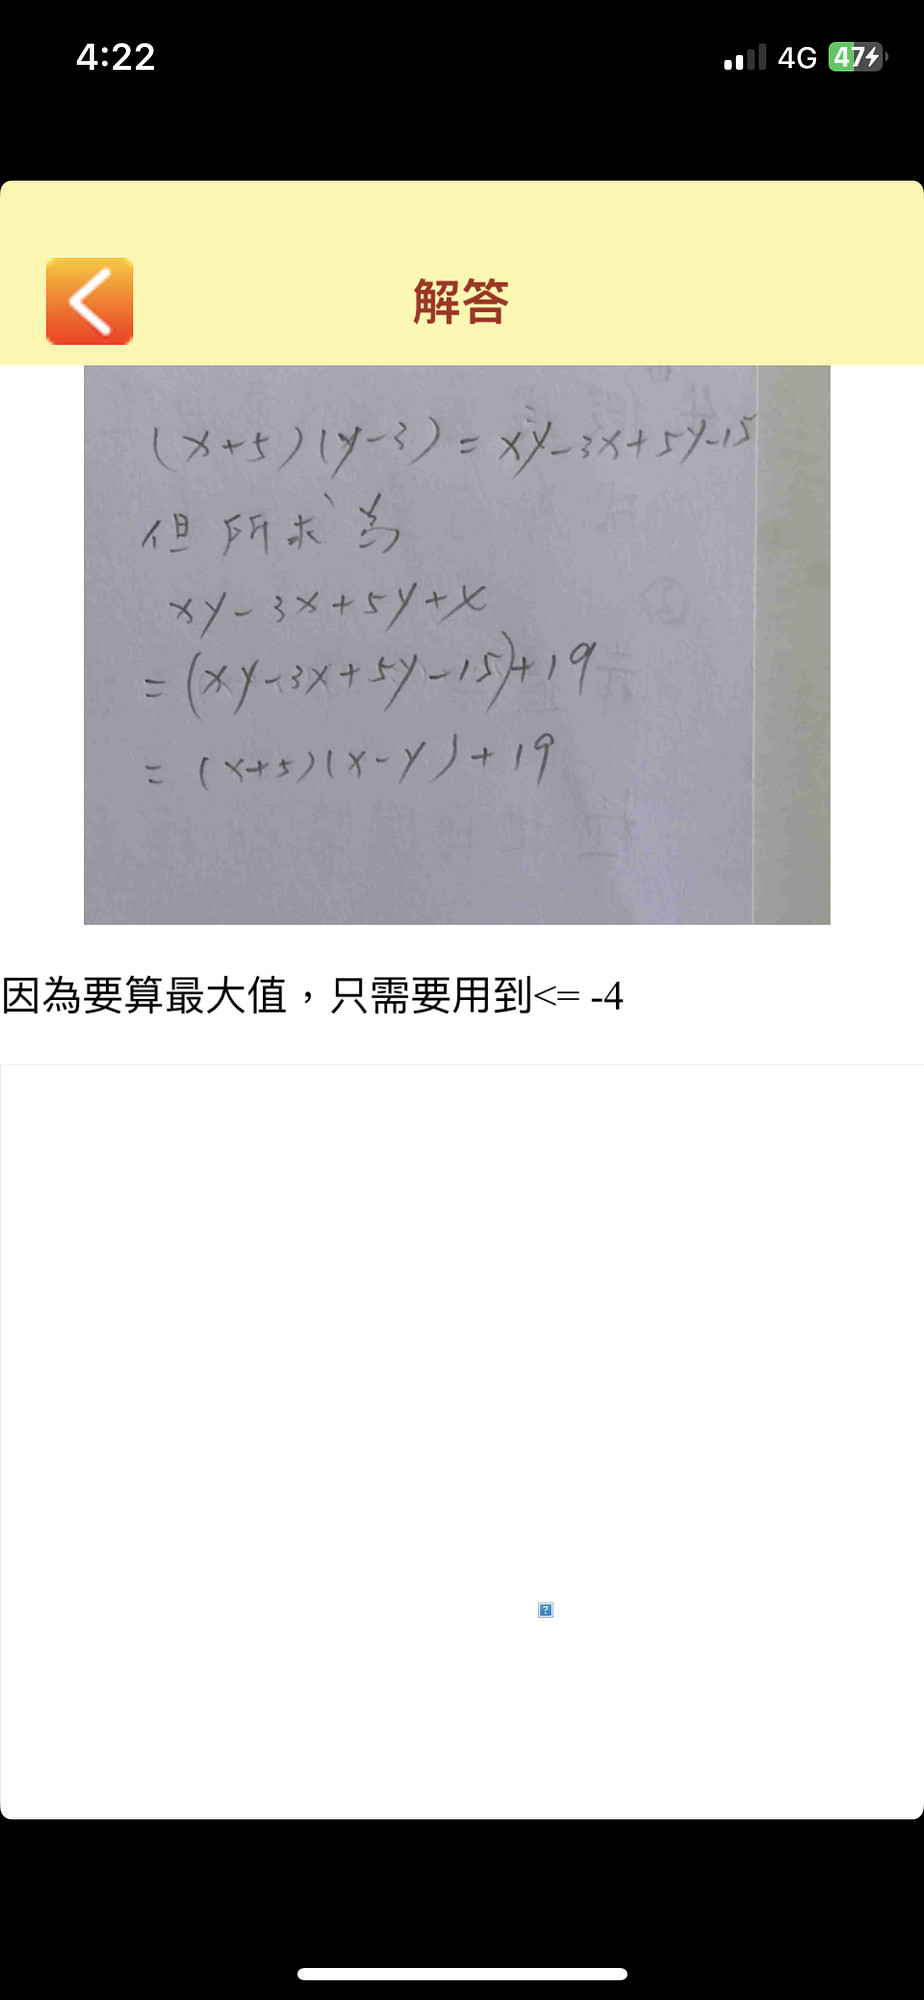 4:22
4G 47
解答
(x+5)(y-3)=xy-3x+5y-15
但所求為
xy-3x+5y+x
=(xy-3x+5y-15)+19
=(x+5)(x-y)+19
因為要算最大值，只需要用到<= -4